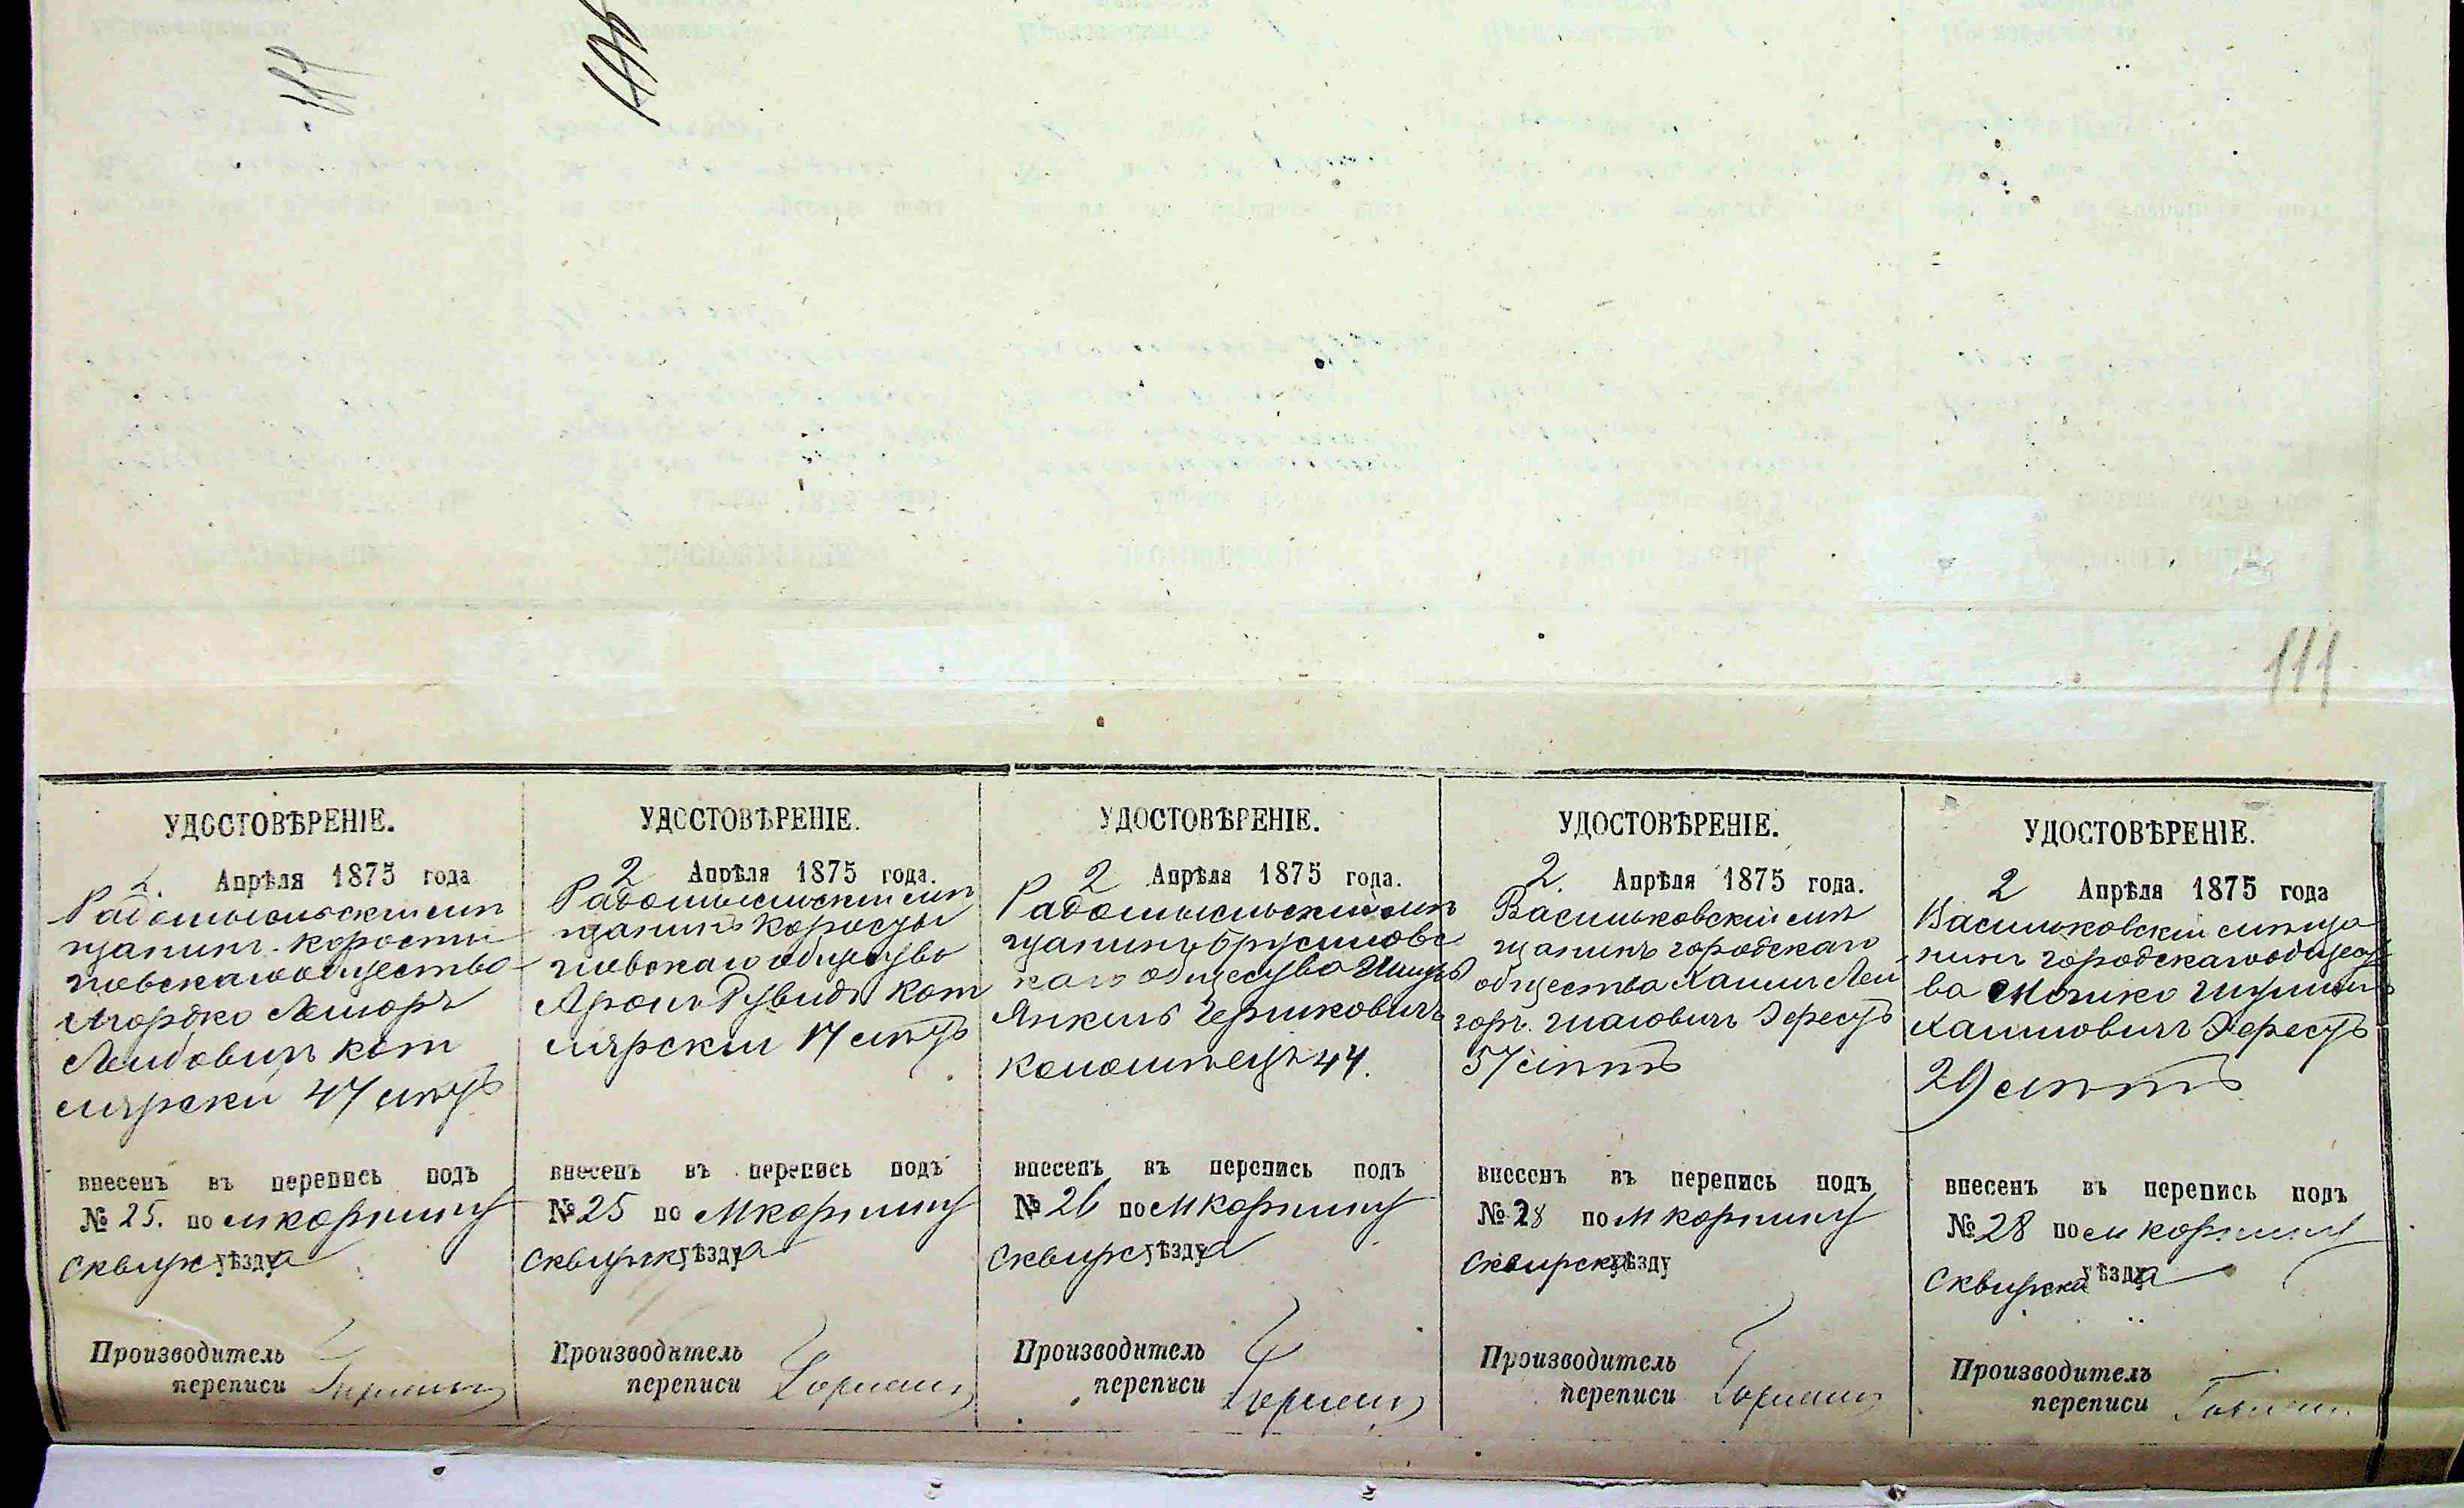 111
УДОСТОВѢРЕНІЕ.
2. Апрѣля 1875 года
Радомысльскій мѣ
щанинъ Корости
шевскаго общества
Мордко Лейзоръ
Лейбовичъ Кот
лярскій 47 лѣтъ
внесенъ въ перепись подъ
№ 25. по м Корнину
Сквирска уѣзду
Производитель
переписи
УДОСТОВѢРЕНІЕ.
2 Апрѣля 1875 года.
Радомысльскій мѣ
щанинъ Корости
шевскаго общества
Аронъ Рувидъ Кот
лярскій 17 лѣтъ
внесенъ въ перепись подъ
№ 25 по М Корнину
Сквирска уѣзду
Производитель
переписи
УДОСТОВѢРЕНІЕ.
2 Апрѣля 1875 года.
Радомысльскій мѣ
щанинъ Брусиловс
каго общества Ицукъ
Янкель Гершковичъ
Коломіецъ 44.
внесенъ въ перепись подъ
№ 26 по М Корнину
Сквирска уѣзду
Производитель
переписи
УДОСТОВѢРЕНІЕ.
2. Апрѣля 1875 года.
Васильковскій мѣ
щанинъ городскаго
общества Хаимъ Лей
зоръ Херестъ
57 лѣтъ
внесенъ въ перепись подъ
№ 28 по м Корнину
Сквирска уѣзду
Производитель
переписи
УДОСТОВѢРЕНІЕ.
2 Апрѣля 1875 года
Васильковскій мѣща
нинъ городскаго общест
ва Мошко
Хаимовичъ Херестъ
29 лѣтъ
внесенъ въ перепись подъ
№ 28 по м Корнину
Сквирска уѣзду
Производитель
переписи